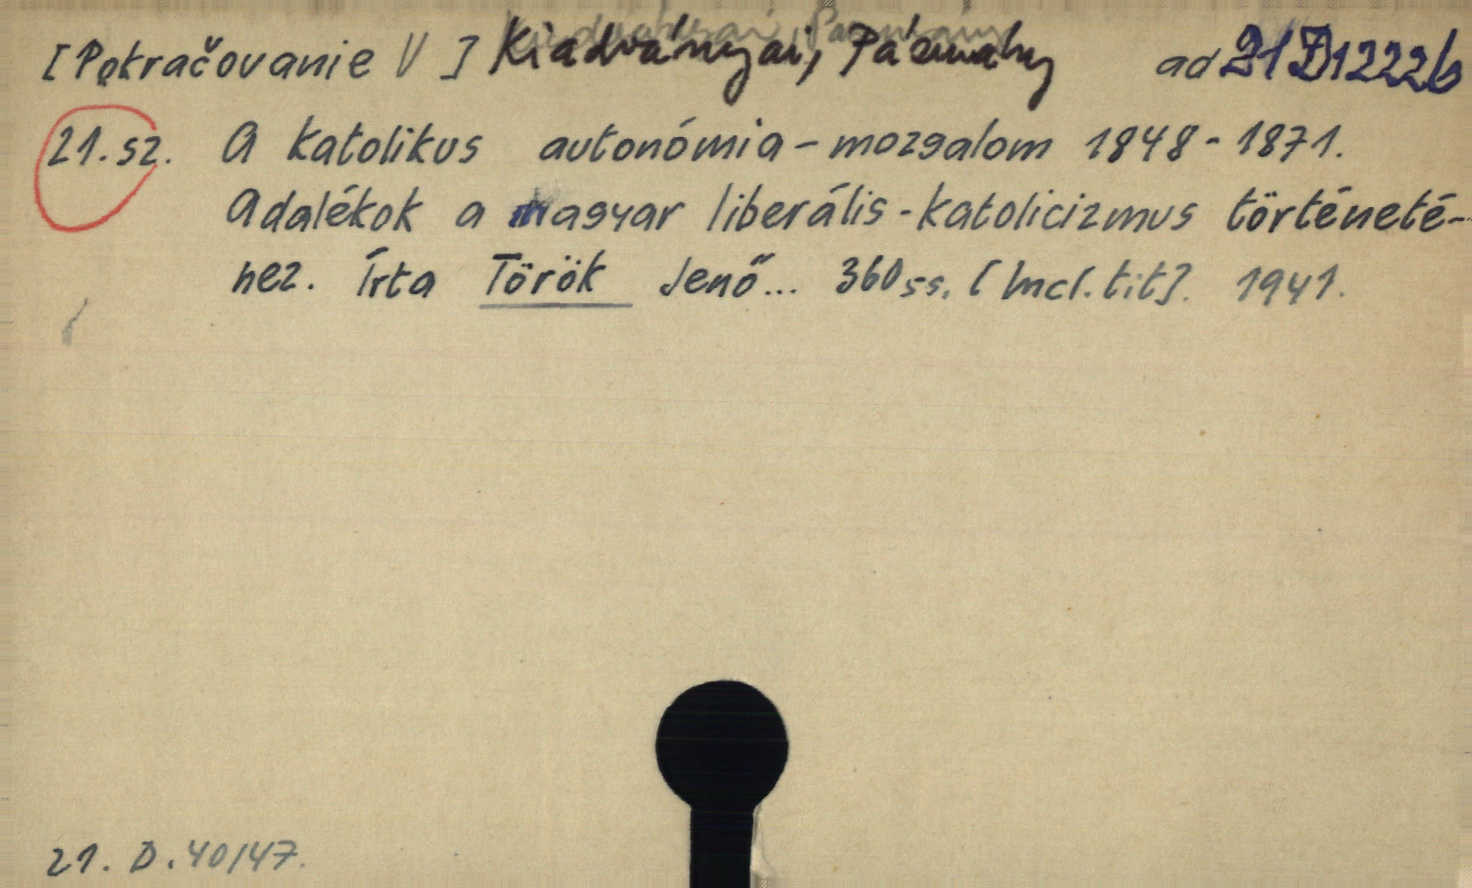 [Pokračovanie V] Kiadványai, Pázmány ad 21D12226
21. sz. A katolikus autonómia-mozgalom 1848-1871.
Adalékok a magyar liberális-katolicizmus történeté-
hez. Írta Török Jenő... 360 ss. [Incl. tit]. 1941.
21. D. 40/47.